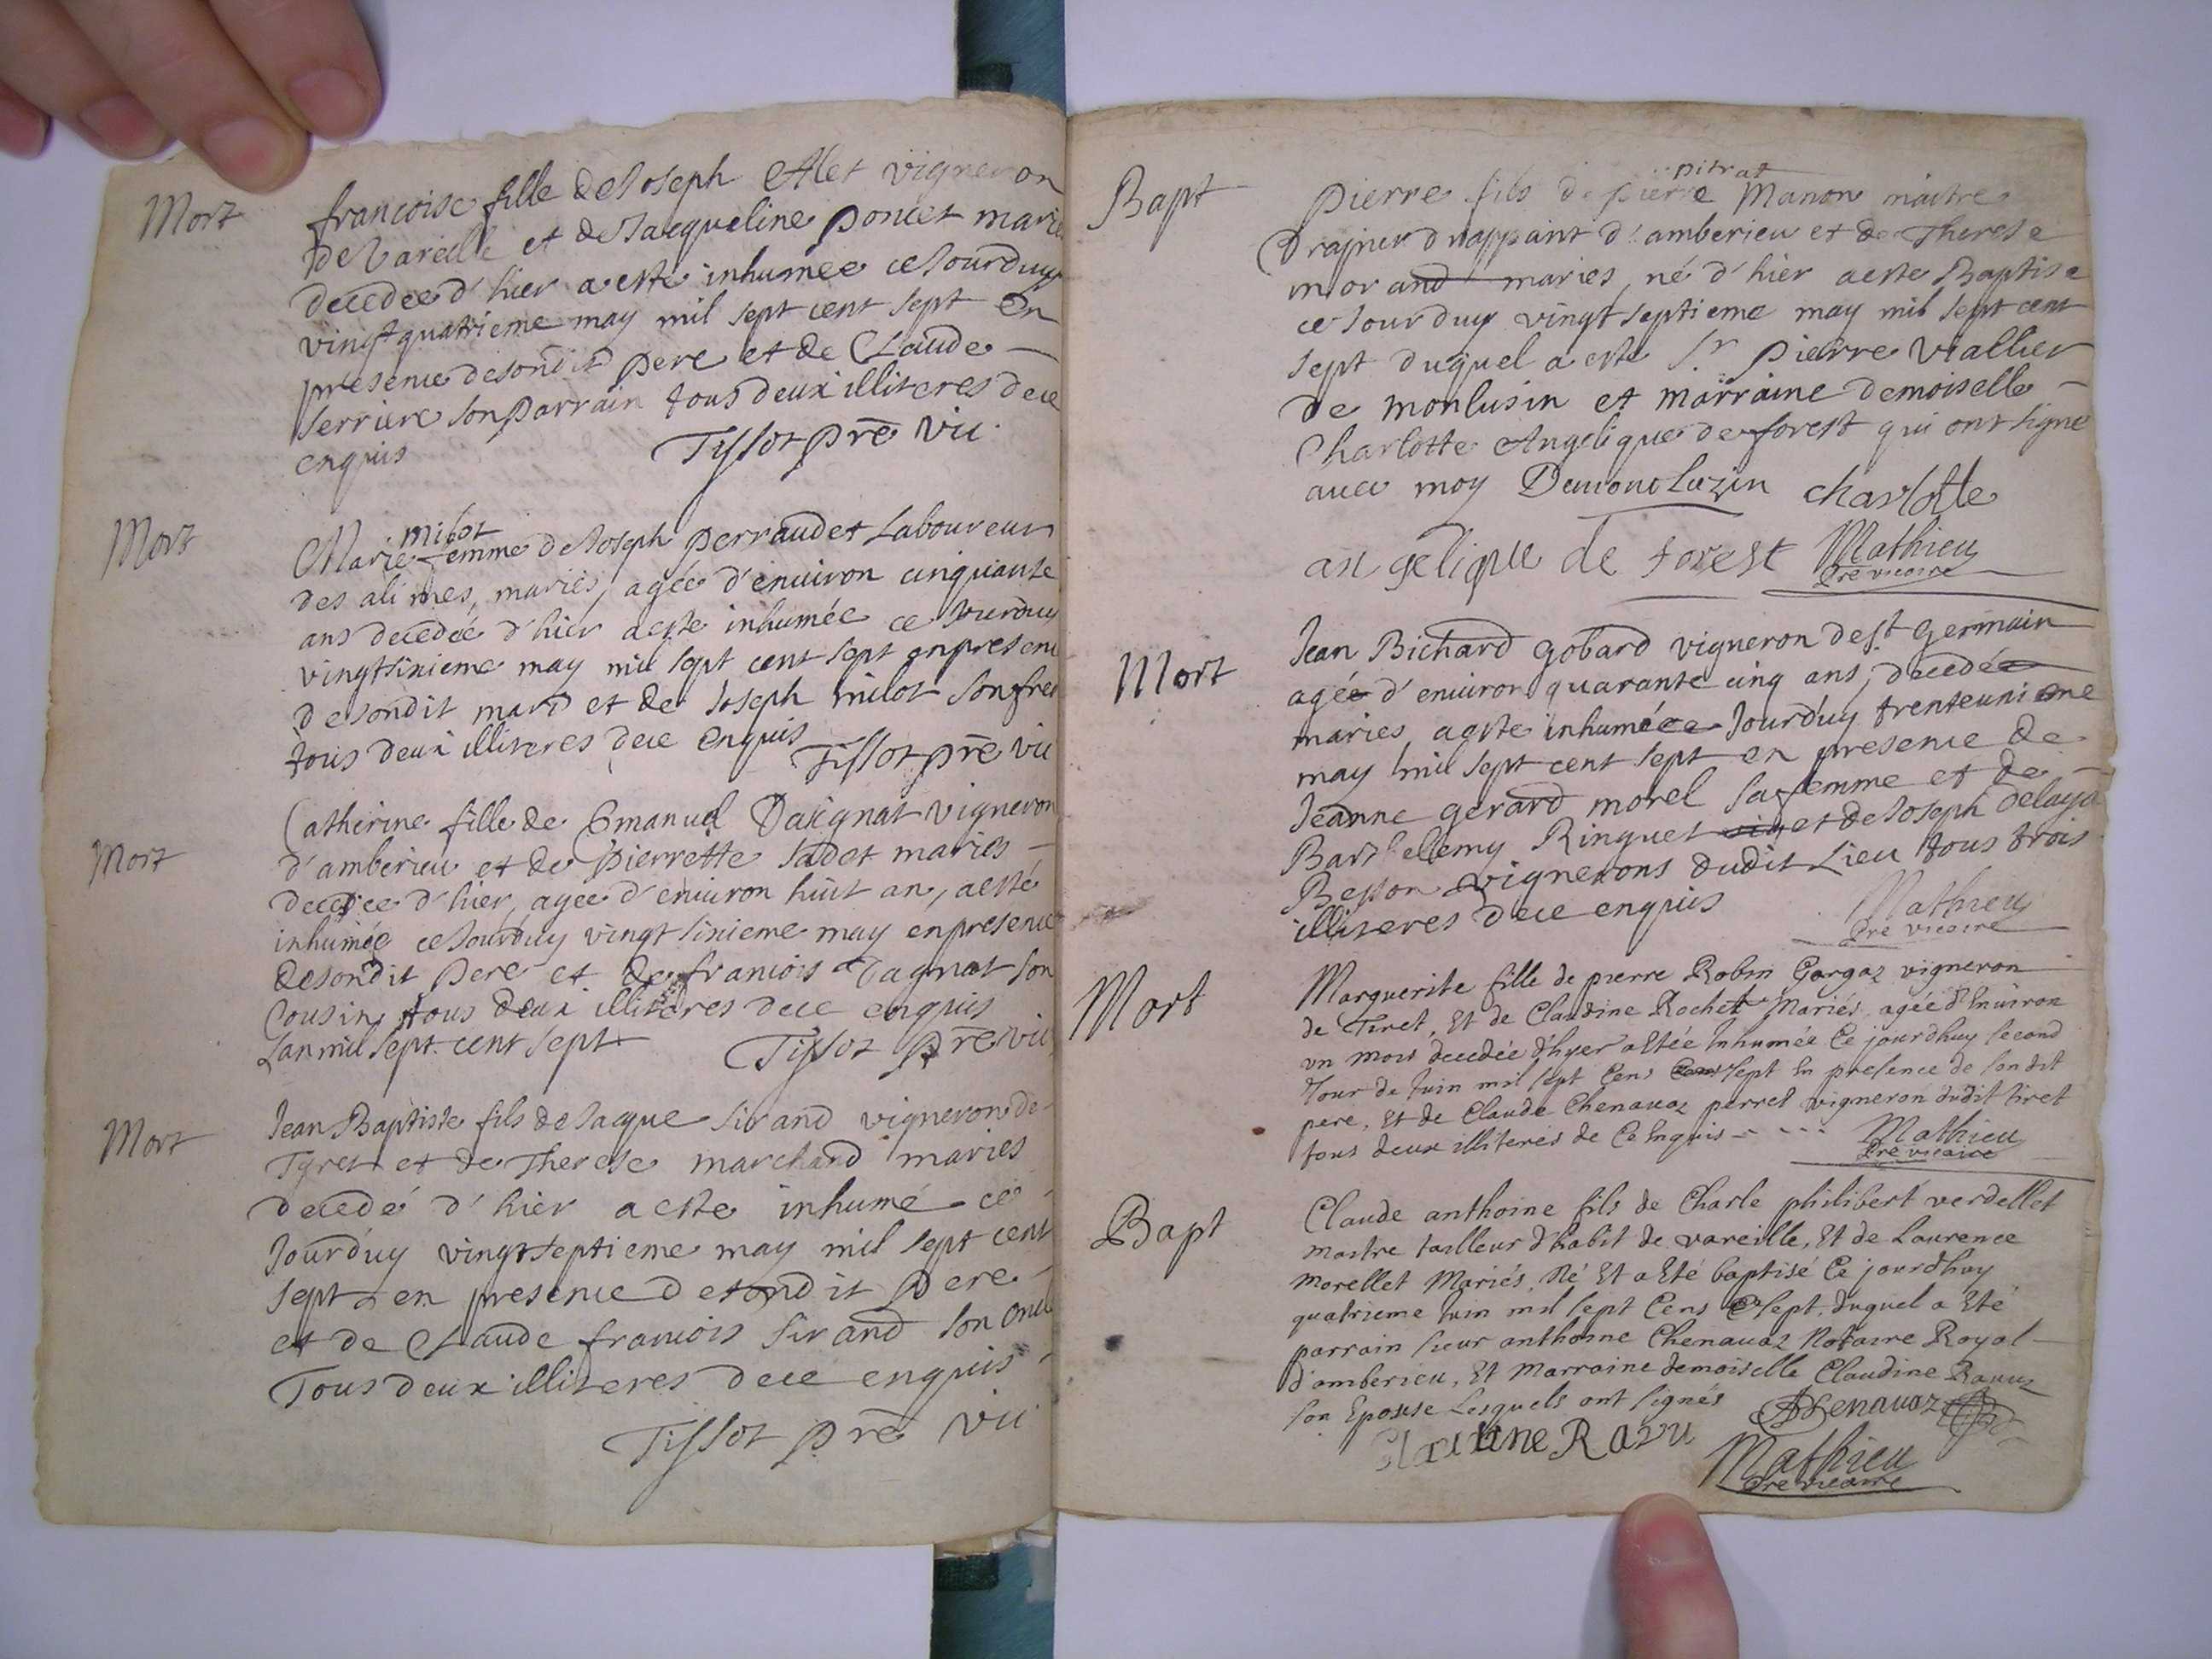 Mort
francoise fille de Joseph Alet vigneron
de Vareille et de Jacqueline poncet maries
decedee d'hier a este inhumee ce Jourduy
vingt quatrieme may mil sept cent sept en
presence de sondit pere et de Claude
serriere son parrain tous deux illiteres de ce
enquis
Tissot pre vic.
Mort
milot
Marie femme de Joseph perraudet Laboureur
des alimes, mariés, agée d'enuiron cinquante
ans decedée d'hier a este inhumée ce Jourduy
vingtsixieme may mil sept cent sept en presence
de sondit mari et de Joseph milot son frer
tous deux illiteres de ce enquis
Tissot pre vic
Mort
Catherine fille de Emanuel Dagnat vigneron
d'amberieu et de pierrette Sadet maries
decedee d'hier, agee d'enuiron huit an, a esté
inhumée ce Jourduy vingt sixieme may en presence
de sondit pere et de francois Dagnat son
Cousin tous deux illiteres de ce enquis
Lan mil sept cent sept
Tissot pre vic
Mort
Jean Baptiste fils de Jacque Sirand vigneron de
Tyret et de Therese marchand maries
decedé d'hier a este inhumé ce
Jourduy vingtseptieme may mil sept cent
sept en presence de sondit pere
et de Claude francois Sirand son oncle
Tous deux illiteres de ce enquis
Tissot pre vic
Bapt
pitrat
Pierre fils de pierre Manon maitre
drapier drappant d'amberieu et de Therese
morand maries, né d'hier a este Baptise
ce Jourduy vingt septieme may mil sept cent
sept duquel a este Sr. pierre Vallier
de monlusin et marraine demoiselle
Charlotte Angelique de forest qui ont signe
auec moy Demonluzin charlotte
angelique de forest Mathieu
pre vicaire
Mort
Jean Bichard gobard vigneron de st germain
agée d'enuiron quarante cinq ans, decedée
maries a este inhumée ce Jourduy trenteunieme
may mil sept cent sept en presence de
Jeanne gerard morel sa femme et de
Barthelemy Ringuet et de Joseph delaya
Besson vignerons dudit Lieu tous trois
illiteres de ce enquis
Mathieu
pre vicaire
Mort
Marguerite fille de pierre Robin Gargaz vigneron
de Tiret, Et de Claudine Rochet Mariés, agée d'Enuiron
un mois decedée d'hyer a Etée Inhumée Ce jourdhuy second
Jour de Juin mil sept Cens sept En presence de son dit
pere, Et de Claude Chenauaz perret vigneron dudit tiret
tous deux illiteres de Ce Enquis - - - -
Mathieu
pre vicaire
Bapt
Claude anthoine fils de Charle philibert verdellet
maitre tailleur d'habit de vareille, Et de Laurence
morellet Mariés, Né Et a Eté baptisé Ce jourdhuy
quatrieme Juin mil sept Cens sept, duquel a Eté
parrain sieur anthoine Chenauaz Notaire Royal
d'amberieu, Et Marraine demoiselle Claudine Rauuz
son Epouse Lesquels ont signés
Chenauaz
Claudine Ravu
Mathieu
pre vicaire